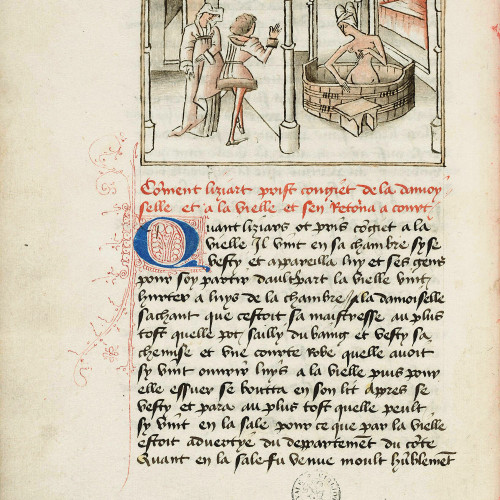 Cõment liziart prist congiet de la damoy
selle et a la vielle et sen Retõna a court
Quant liziars ot pris cõgiet a la
vielle Il vint en sa chambre sy se
vesty et appareilla luy et ses gens
pour soy partir daultspart la vielle vint
hurter a luys de la chambre / a la damoiselle
sachant que cestoit sa maistresse au plus
tost quelle pot sailly du baing et vesty sa
chemise et vne courte Robe quelle auoit
sy vint ouurir luys a la vielle puis pour
elle essuer se boutta en son lit appres se
vesty et para au plus tost quelle peult
sy vint en la sale pour ce que par la vielle
estoit aduertye du departement du cõte
Quant en la sale fu venue moult hũblemẽt